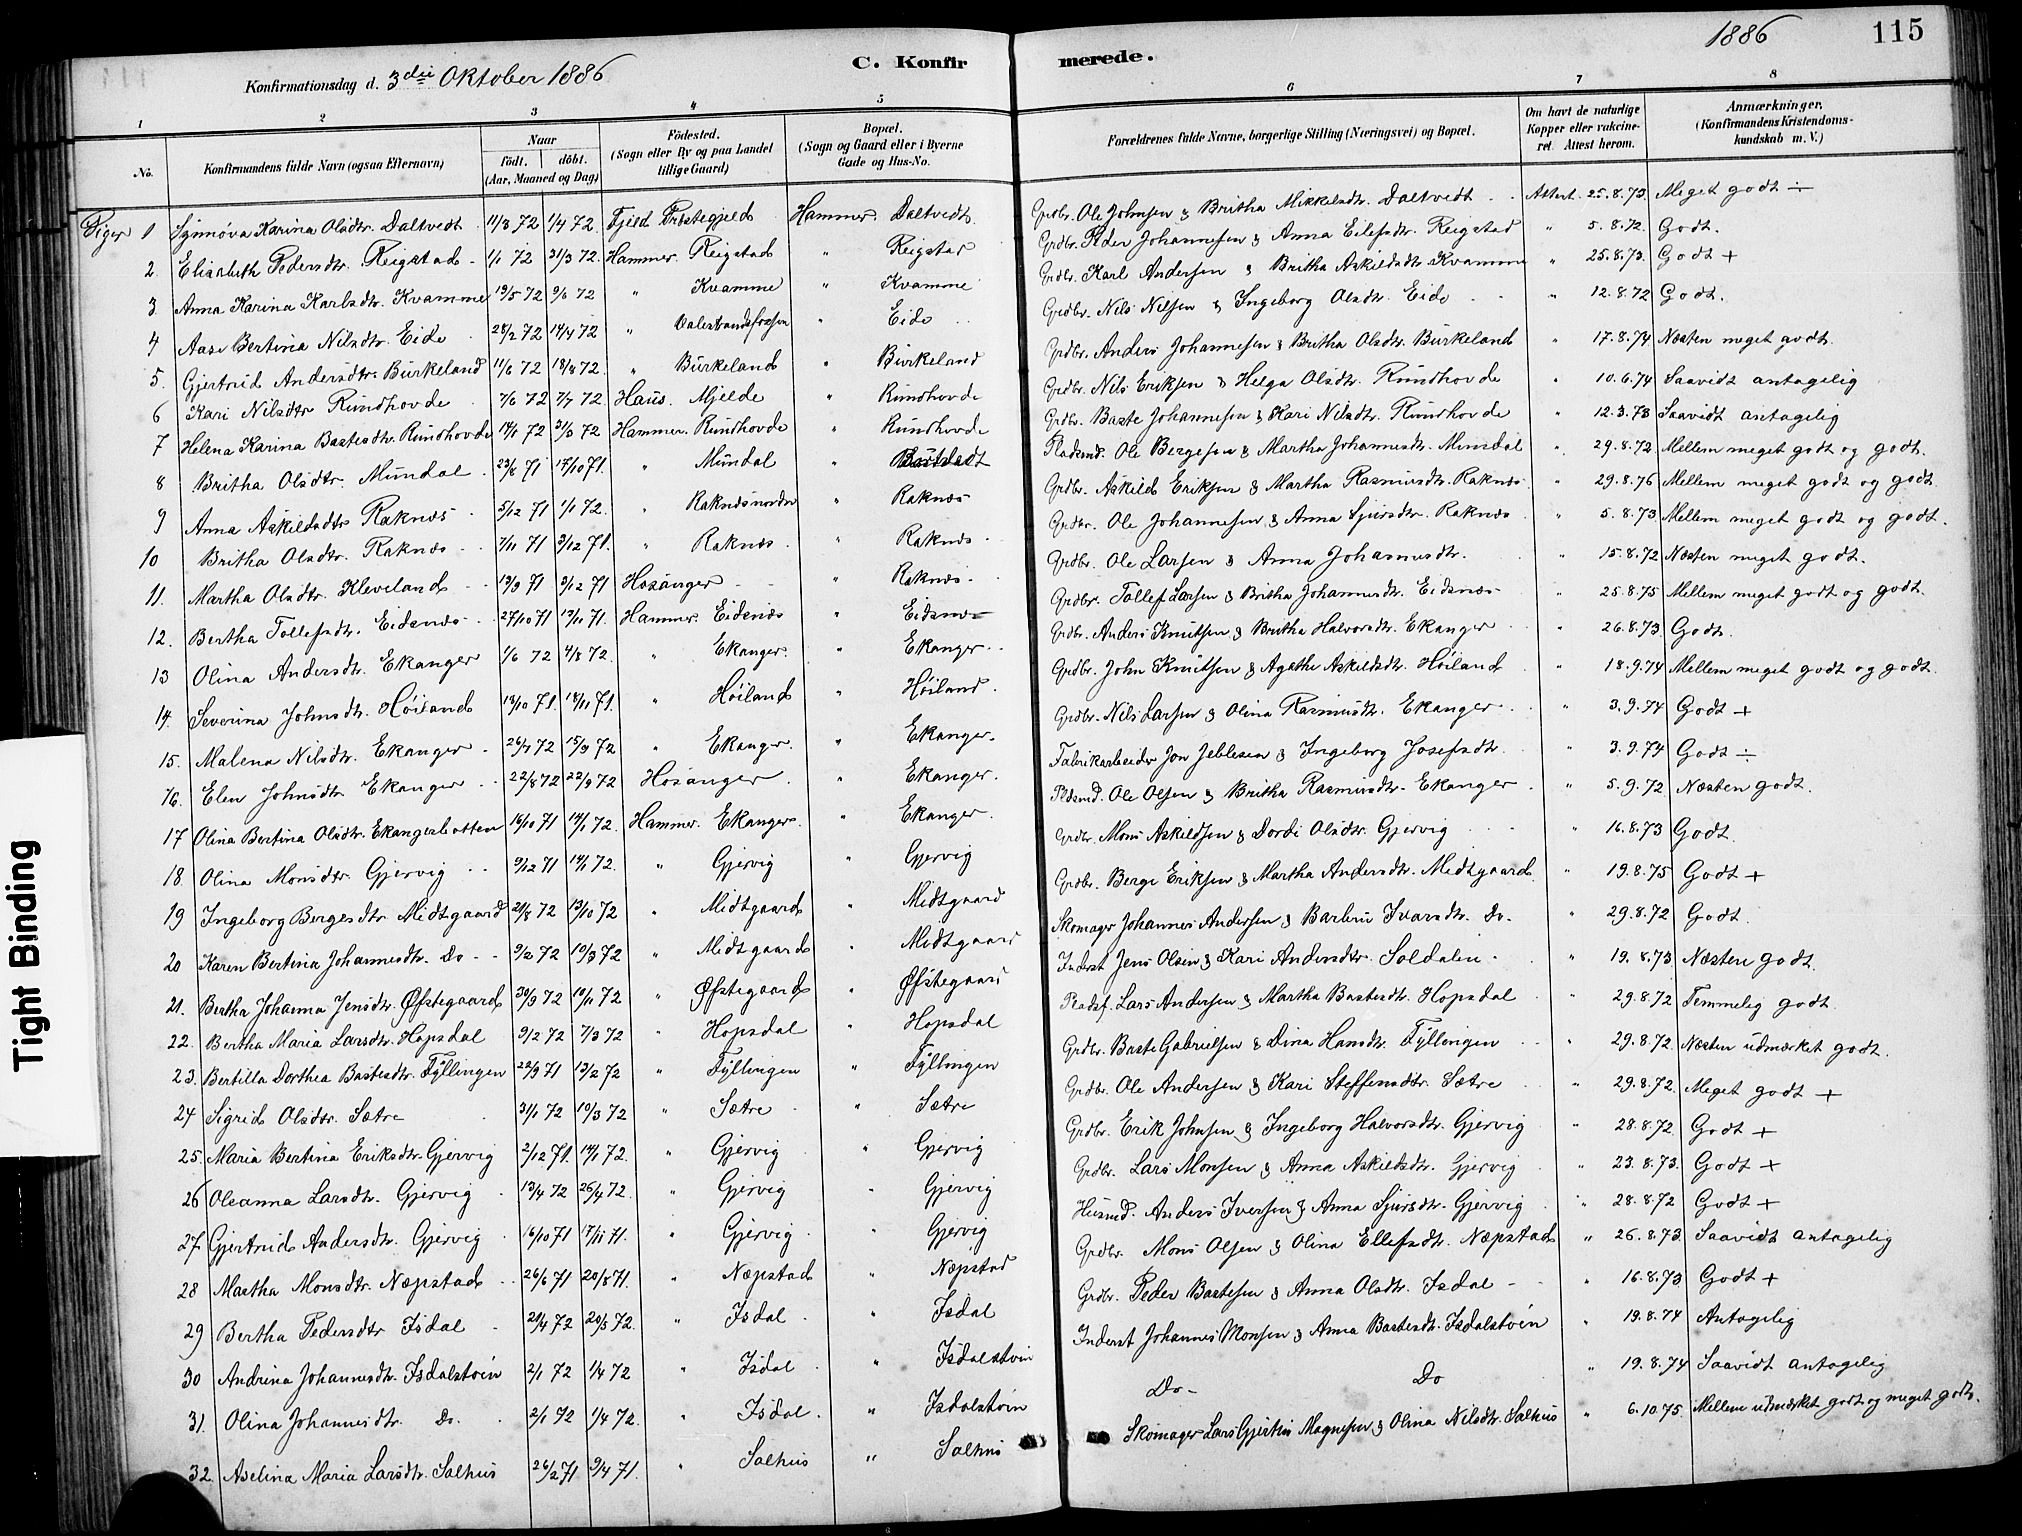 1886 115
C. Konfirmerede.
Konfirmationsdag d. 3die Oktober 1886
1 2 3 4 5 6 7 8
No. Konfirmandens fulde Navn (ogsaa Efternavn) Naar født. døbt. (Aar, Maaned og Dag) Fødested. (Sogn eller By og paa Landet tillige Gaard) Bopæl. (Sogn og Gaard eller i Byerne Gade og Hus-No. Forældrenes fulde Navne, borgerlige Stilling (Næringsvei) og Bopæl. Om havt de naturlige Kopper eller vakcineret. Attest herom. Anmærkninger. (Konfirmandens Kristendomskundskab m. V.)
Piger 1 Synnøva Karina Olsdtr. Daltvedt 11/3 72 1/4 72 Fjeld Præstegjeld Hammer Daltvedt Grdbr. Ole Johnsen & Britha Mikkelsdtr. Daltvedt Attest 25.8.73 Meget godt ÷
2. Elisabeth Pedersdtr. Reigstad 1/1 72 31/3 72 Hammer Reigstad " Reigstad Grdbr. Peder Johannesen & Anna Eilefsdtr. Reigstad " 5.8.72 Godt.
3 Anna Karina Karlsdtr. Kvamme 19/5 72 9/6 72 " Kvamme " Kvamme Grdbr. Karl Andersen & Britha Askildsdtr. Kvamme " 25.8.73. Godt +
4 Aase Bertina Nilsdtr. Eide 28/2 72 14/4 72 " Valestrandsfossen " Eide Grdbr. Nils Nilsen & Ingeborg Olsdtr. Eide " 12.8.72 Godt.
5. Gjertrud Andersdtr. Burkeland 11/6 72 18/8 72. " Burkeland " Burkeland Grdbr. Anders Johannesen & Britha Olsdtr. Burkeland " 17.8.74 Næsten meget godt.
6 Kari Nilsdtr Rundhovde 7/6 72 7/7 72 Haus. Mjelde " Rundhovde Grdbr. Nils Eriksen & Helga Olsdtr. Rundhovde " 10.6.74 Saavidt antagelig
7 Helena Karina Bastesdtr. Rundhovde 14/1 72 31/3 72 Hammer. Rundhovde " Rundhovde Grdbr. Baste Johannesen & Kari Nilsdtr. Rundhovde " 12.3.73 Saavidt antagelig
8 Britha Olsdtr. Mundal 23/6 71 17/10 71. " Mundal " Pladsmd. Ole Bergesen & Martha Johannesdtr. Mundal " 29.8.72 Mellem meget godt og godt.
9 Anna Askildsdtr Raknæs 5/12 71 1/1 72. " Raknæs nordre " Raknæs Grdbr. Askild Eriksen & Martha Rasmusdtr. Raknæs " 29.8.76 Mellem meget godt og godt
10 Britha Olsdtr. Raknæs 7/11 71 3/12 71. " Raknæs " Raknæs Grdbr. Ole Johannesen & Anna Sjursdtr. Raknæs " 5.8.73 Mellem meget godt og godt.
11. Martha Olsdtr. Kleveland 13/9 71 3/12 71 Hosanger " Raknæs Grdbr. Ole Larsen & Anna Johannesdtr. " 15.8.72 Næsten meget godt.
12. Bertha Tollefsdtr. Eidsnæs 27/10 71 19/11 71. Hammer. Eidsnæs " Eidsnæs Grdbr. Tollef Larsen & Britha Johannesdtr. Eidsnæs " 25.8.75 Mellem meget godt og godt.
13 Olina Andersdtr. Ekanger 1/6 72 4/8 72. " Ekanger. " Ekanger Grdbr. Anders Knutsen & Britha Halvorsdtr. Ekanger " 26.8.73 Godt.
14. Severina Johnsdtr. Høiland 13/10 71. 18/11 71. " Høiland " Høiland Grdbr. John Knutsen & Agathe Askildsdtr. Høiland " 18.9.74 Mellem meget godt og godt.
15. Malena Nilsdtr. Ekanger 26/7 72 15/9 72 " Ekanger. " Ekanger. Grdbr. Nils Larsen & Olina Rasmusdtr. Ekanger " 3.9.74 Godt +
16. Elen Johnsdtr. Ekanger 22/8 72 22/9 72 Hosanger " Ekanger. Fabrikarbeider Jon Jeblesen & Ingeborg Josefsdtr. " 3.9.74 Godt ÷
17 Olina Bertina Olsdtr. Ekangerbotten 16/10 71 14/1 72. Hammer. Ekanger. " Ekanger. Pldsmd. Ole Olsen & Britha Rasmusdtr. Ekanger " 5.9.72 Næsten godt.
18. Olina Monsdtr. Gjervig 9/12 71 14/1 72. " Gjervig " Gjervig Grdbr. Mons Askildsen & Dordi Olsdtr. Gjervig " 16.8.73 Godt
19 Ingeborg Bergesdtr Midtgaard 21/8 72 13/10 72 " Midtgaard " Midtgaard Grdbr. Berge Eriksen & Martha Andersdtr. Midtgaard " 19.8.75 Godt +
20 Karen Bertina Johannesdtr. Do 9/2 72 10/3 72 " Midtgaard " Midtgaard Skomager Johannes Andersen & Barbru Ivarsdtr. Do. " 29.8.72 Godt
21. Bertha Johanna Jensdtr. Øfstegaard 30/9 72 10/11 72 " Øfstegaard " Øfstegaard Inderst Jens Olsen & Kari Andersdtr. Soldalen " 19.8.73 Næsten godt.
22. Bertha Maria Larsdtr. Hopsdal 9/2 72 7/3 72 " Hopsdal " Hopsdal Pladsf. Lars Andersen & Martha Bastesdtr. Hopsdal " 29.8.72 Temmelig godt.
23. Bertilla Dorthea Bastesdtr. Fyllingen 22/9 71 13/2 72 " Fyllingen " Fyllingen Grdbr. Baste Gabrielsen & Dina Hansdtr. Fyllingen " 29.8.72. Næsten udmærket godt.
24 Sigrid Olsdtr. Sætre 31/1 72 10/3 72 " Sætre " Sætre Grdbr. Ole Andersen & Kari Steffensdtr. Sætre " 29.8.72. Meget godt +
25. Maria Bertina Eriksdtr. Gjervig 2/12 71. 14/1 72. " Gjervig " Gjervig Grdbr. Erik Johnsen & Ingeborg Halvorsdtr. Gjervig " 28.8.72 Godt +
26 Oleanna Larsdtr. Gjervig 13/4 72 26/4 72. " Gjervig " Gjervig Grdbr. Lars Monsen & Anna Askildsdtr. Gjervig " 23.8.73. Godt +
27 Gjertrud Andersdtr. Gjervig 16/10 71 17/11 71. " Gjervig " Gjervig Husmd. Anders Iversen & Anna Sjursdtr. Gjervig " 28.8.72 Godt +
28 Martha Monsdtr. Næpstad 26/6 71 20/8 71. " Næpstad " Næpstad Grdbr. Mons Olsen & Olina Ellefsdtr. Næpstad " 26.8.73 Saavidt antagelig
29 Bertha Pedersdtr Isdal 21/4 72 20/5 72. " Isdal " Isdal Grdbr. Peder Bastesen & Anna Olsdtr. Isdal " 16.8.73 Godt +
30 Andrina Johannesdtr. Isdalstøen 2/1 72 1/4 72 " Isdal " Isdalstøen Inderst Johannes Monsen & Anna Bastesdtr. Isdalstøen " 19.8.74 Antagelig
31. Olina Johannesdtr. Do. 2/1 72 1/4 72. " Isdal. " Isdalstøen Do Do " 19.8.74 Saavidt antagelig
32. Aselina Maria Larsdtr. Salhus 26/2 71 9/4 71. " Salhus " Salhus Skomager Lars Gjertius Magnesen & Olina Nilsdtr. Salhus " 6.10.75. Mellem udmærket godt og meget godt.
Tight Binding